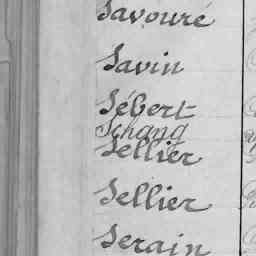 Savouré
Savin
Sébert
Schang
Sellier
Sellier
Serain